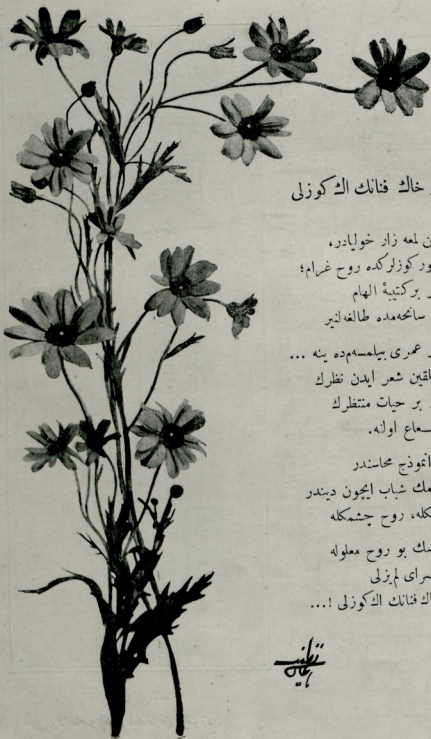 خاك فنانك اك كوزلى
لمعه زار خوليادر،
كوزلركده روح غرام؛
بركتيبۀ الهام
سانحه‌مده طالغه‌لنير
عمرى بيلمسه‌م‌ده ينه ...
شعر ايدن نظرك
بر حيات منتظرك
اولنه.
انموذج محاسندر
شباب ايچون ديندر
روح چشمكله
بو روح معلوله
لم‌يزلى
فنانك اك كوزلى !...